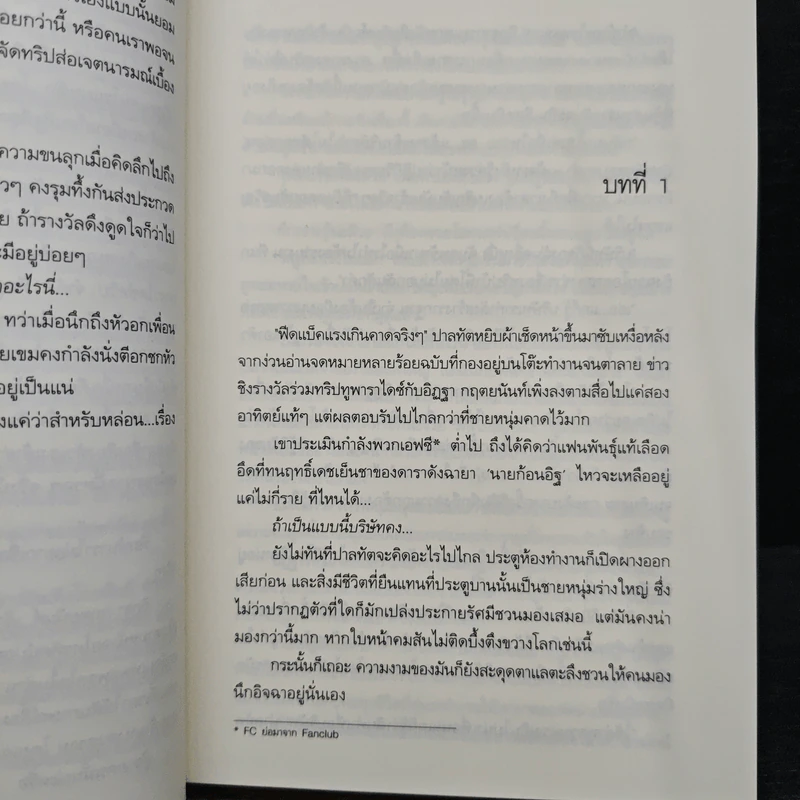 องแบบนั้นยอม
อยกว่านี้ หรือคนเราพอจน
จัดทริปส่อเจตนารมณ์เบื้อง
ความขนลุกเมื่อคิดลึกไปถึง
วๆ คงรุมทึ้งกันส่งประกวด
ย ถ้ารางวัลดึงดูดใจก็ว่าไป
ะมีอยู่บ่อยๆ
อะไรนี่...
ทว่าเมื่อนึกถึงหัวอกเพื่อน
ยเขมคงกำลังนั่งตีอกชกหัว
อยู่เป็นแน่
งแค่ว่าสำหรับหล่อน...เรื่อง
บทที่ 1
"ฟีดแบ็คแรงเกินคาดจริงๆ" ปาลทัตหยิบผ้าเช็ดหน้าขึ้นมาซับเหงื่อหลัง
จากง่วนอ่านจดหมายหลายร้อยฉบับที่กองอยู่บนโต๊ะทำงานจนตาลาย ข่าว
ชิงรางวัลร่วมทริปทูพาราไดซ์กับอิฏฐา กฤตยนันท์เพิ่งลงตามสื่อไปแค่สอง
อาทิตย์แท้ๆ แต่ผลตอบรับไปไกลกว่าที่ชายหนุ่มคาดไว้มาก
เขาประเมินกำลังพวกเอฟซี* ต่ำไป ถึงได้คิดว่าแฟนพันธุ์แท้เลือด
อึดที่ทนฤทธิ์เดชเย็นชาของดาราดังฉายา 'นายก้อนอิฐ' ไหวจะเหลืออยู่
แค่ไม่กี่ราย ที่ไหนได้...
ถ้าเป็นแบบนี้บริษัทคง...
ยังไม่ทันที่ปาลทัตจะคิดอะไรไปไกล ประตูห้องทำงานก็เปิดผางออก
เสียก่อน และสิ่งมีชีวิตที่ยืนแทนที่ประตูบานนั้นเป็นชายหนุ่มร่างใหญ่ ซึ่ง
ไม่ว่าปรากฏตัวที่ใดก็มักเปล่งประกายรัศมีชวนมองเสมอ แต่มันคงน่า
มองกว่านี้มาก หากใบหน้าคมสันไม่ติดบึ้งตึงขวางโลกเช่นนี้
กระนั้นก็เถอะ ความงามของมันก็ยังสะดุดตาแลตะลึงชวนให้คนมอง
นึกอิจฉาอยู่นั่นเอง
* FC ย่อมาจาก Fanclub